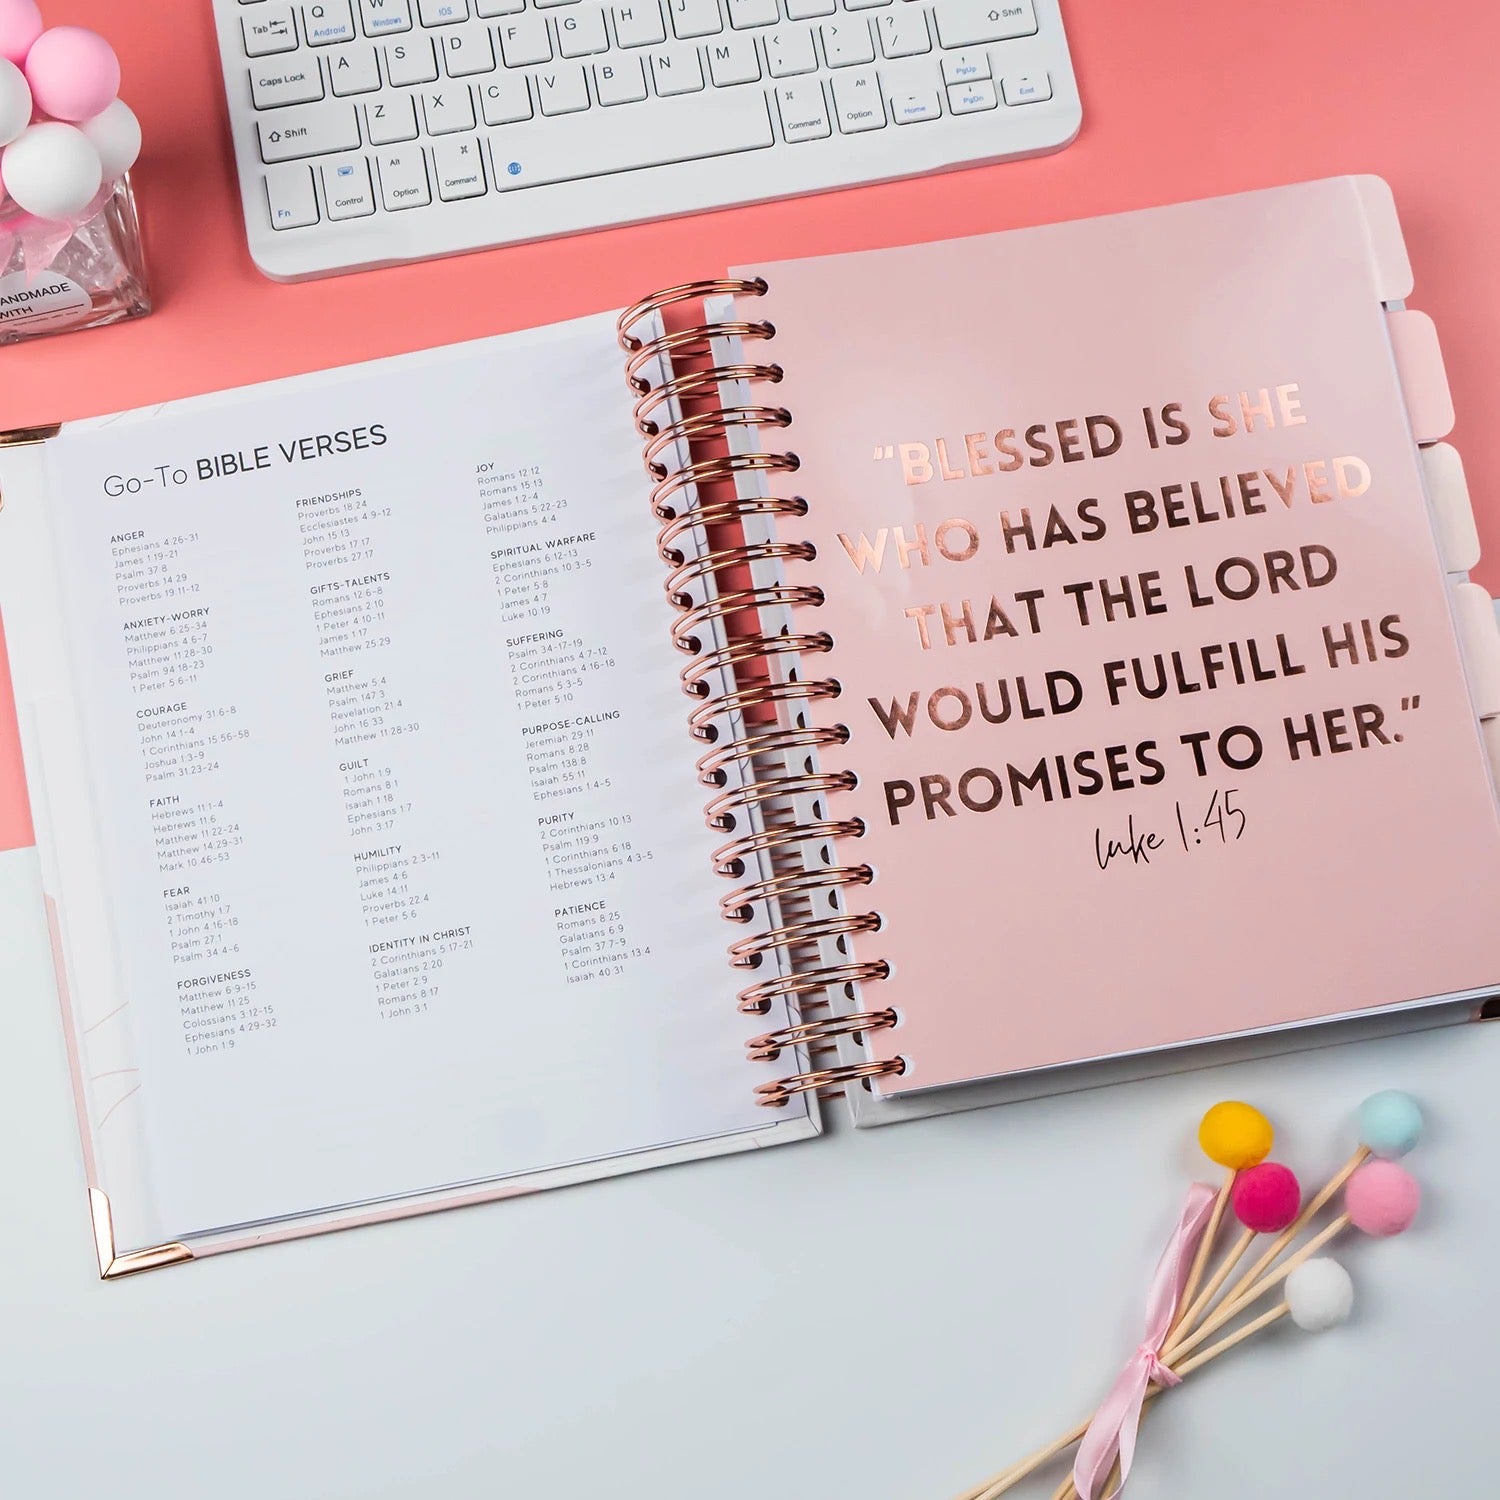 Tab
Q
Android
W
Windows
iOS
Caps Lock
A
S
D
F
G
H
J
<
,
>
.
?
/
Shift
Shift
Z
X
C
V
B
N
M
Fn
Control
Alt
Option
⌘
Command
⌘
Command
Alt
Option
Home
PgUp
PgDn
End
ANDMADE
WITH
Go-To BIBLE VERSES
ANGER
Ephesians 4:26-31
James 1:19-21
Psalm 37:8
Proverbs 14:29
Proverbs 19:11-12
ANXIETY-WORRY
Matthew 6:25-34
Philippians 4:6-7
Matthew 11:28-30
Psalm 94:18-23
1 Peter 5:6-11
COURAGE
Deuteronomy 31:6-8
John 14:1-4
1 Corinthians 15:56-58
Joshua 1:3-9
Psalm 31:23-24
FAITH
Hebrews 11:1-4
Hebrews 11:6
Matthew 11:22-24
Matthew 14:29-31
Mark 10:46-53
FEAR
Isaiah 41:10
2 Timothy 1:7
1 John 4:16-18
Psalm 27:1
Psalm 34:4-6
FORGIVENESS
Matthew 6:9-15
Matthew 11:25
Colossians 3:12-15
Ephesians 4:29-32
1 John 1:9
FRIENDSHIPS
Proverbs 18:24
Ecclesiastes 4:9-12
John 15:13
Proverbs 17:17
Proverbs 27:17
GIFTS-TALENTS
Romans 12:6-8
Ephesians 2:10
1 Peter 4:10-11
James 1:17
Matthew 25:29
GRIEF
Matthew 5:4
Psalm 147:3
Revelation 21:4
John 16:33
Matthew 11:28-30
GUILT
1 John 1:9
Romans 8:1
Isaiah 1:18
Ephesians 1:7
John 3:17
HUMILITY
Philippians 2:3-11
James 4:6
Luke 14:11
Proverbs 22:4
1 Peter 5:6
IDENTITY IN CHRIST
2 Corinthians 5:17-21
Galatians 2:20
1 Peter 2:9
Romans 8:17
1 John 3:1
JOY
Romans 12:12
Romans 15:13
James 1:2-4
Galatians 5:22-23
Philippians 4:4
SPIRITUAL WARFARE
Ephesians 6:12-13
2 Corinthians 10:3-5
1 Peter 5:8
James 4:7
Luke 10:19
SUFFERING
Psalm 34-17-19
2 Corinthians 4:7-12
2 Corinthians 4:16-18
Romans 5:3-5
1 Peter 5:10
PURPOSE-CALLING
Jeremiah 29:11
Romans 8:28
Psalm 138:8
Isaiah 55:11
Ephesians 1:4-5
PURITY
2 Corinthians 10:13
Psalm 119:9
1 Corinthians 6:18
1 Thessalonians 4:3-5
Hebrews 13:4
PATIENCE
Romans 8:25
Galatians 6:9
Psalm 37:7-9
1 Corinthians 13:4
Isaiah 40:31
"BLESSED IS SHE
WHO HAS BELIEVED
THAT THE LORD
WOULD FULFILL HIS
PROMISES TO HER."
Luke 1:45